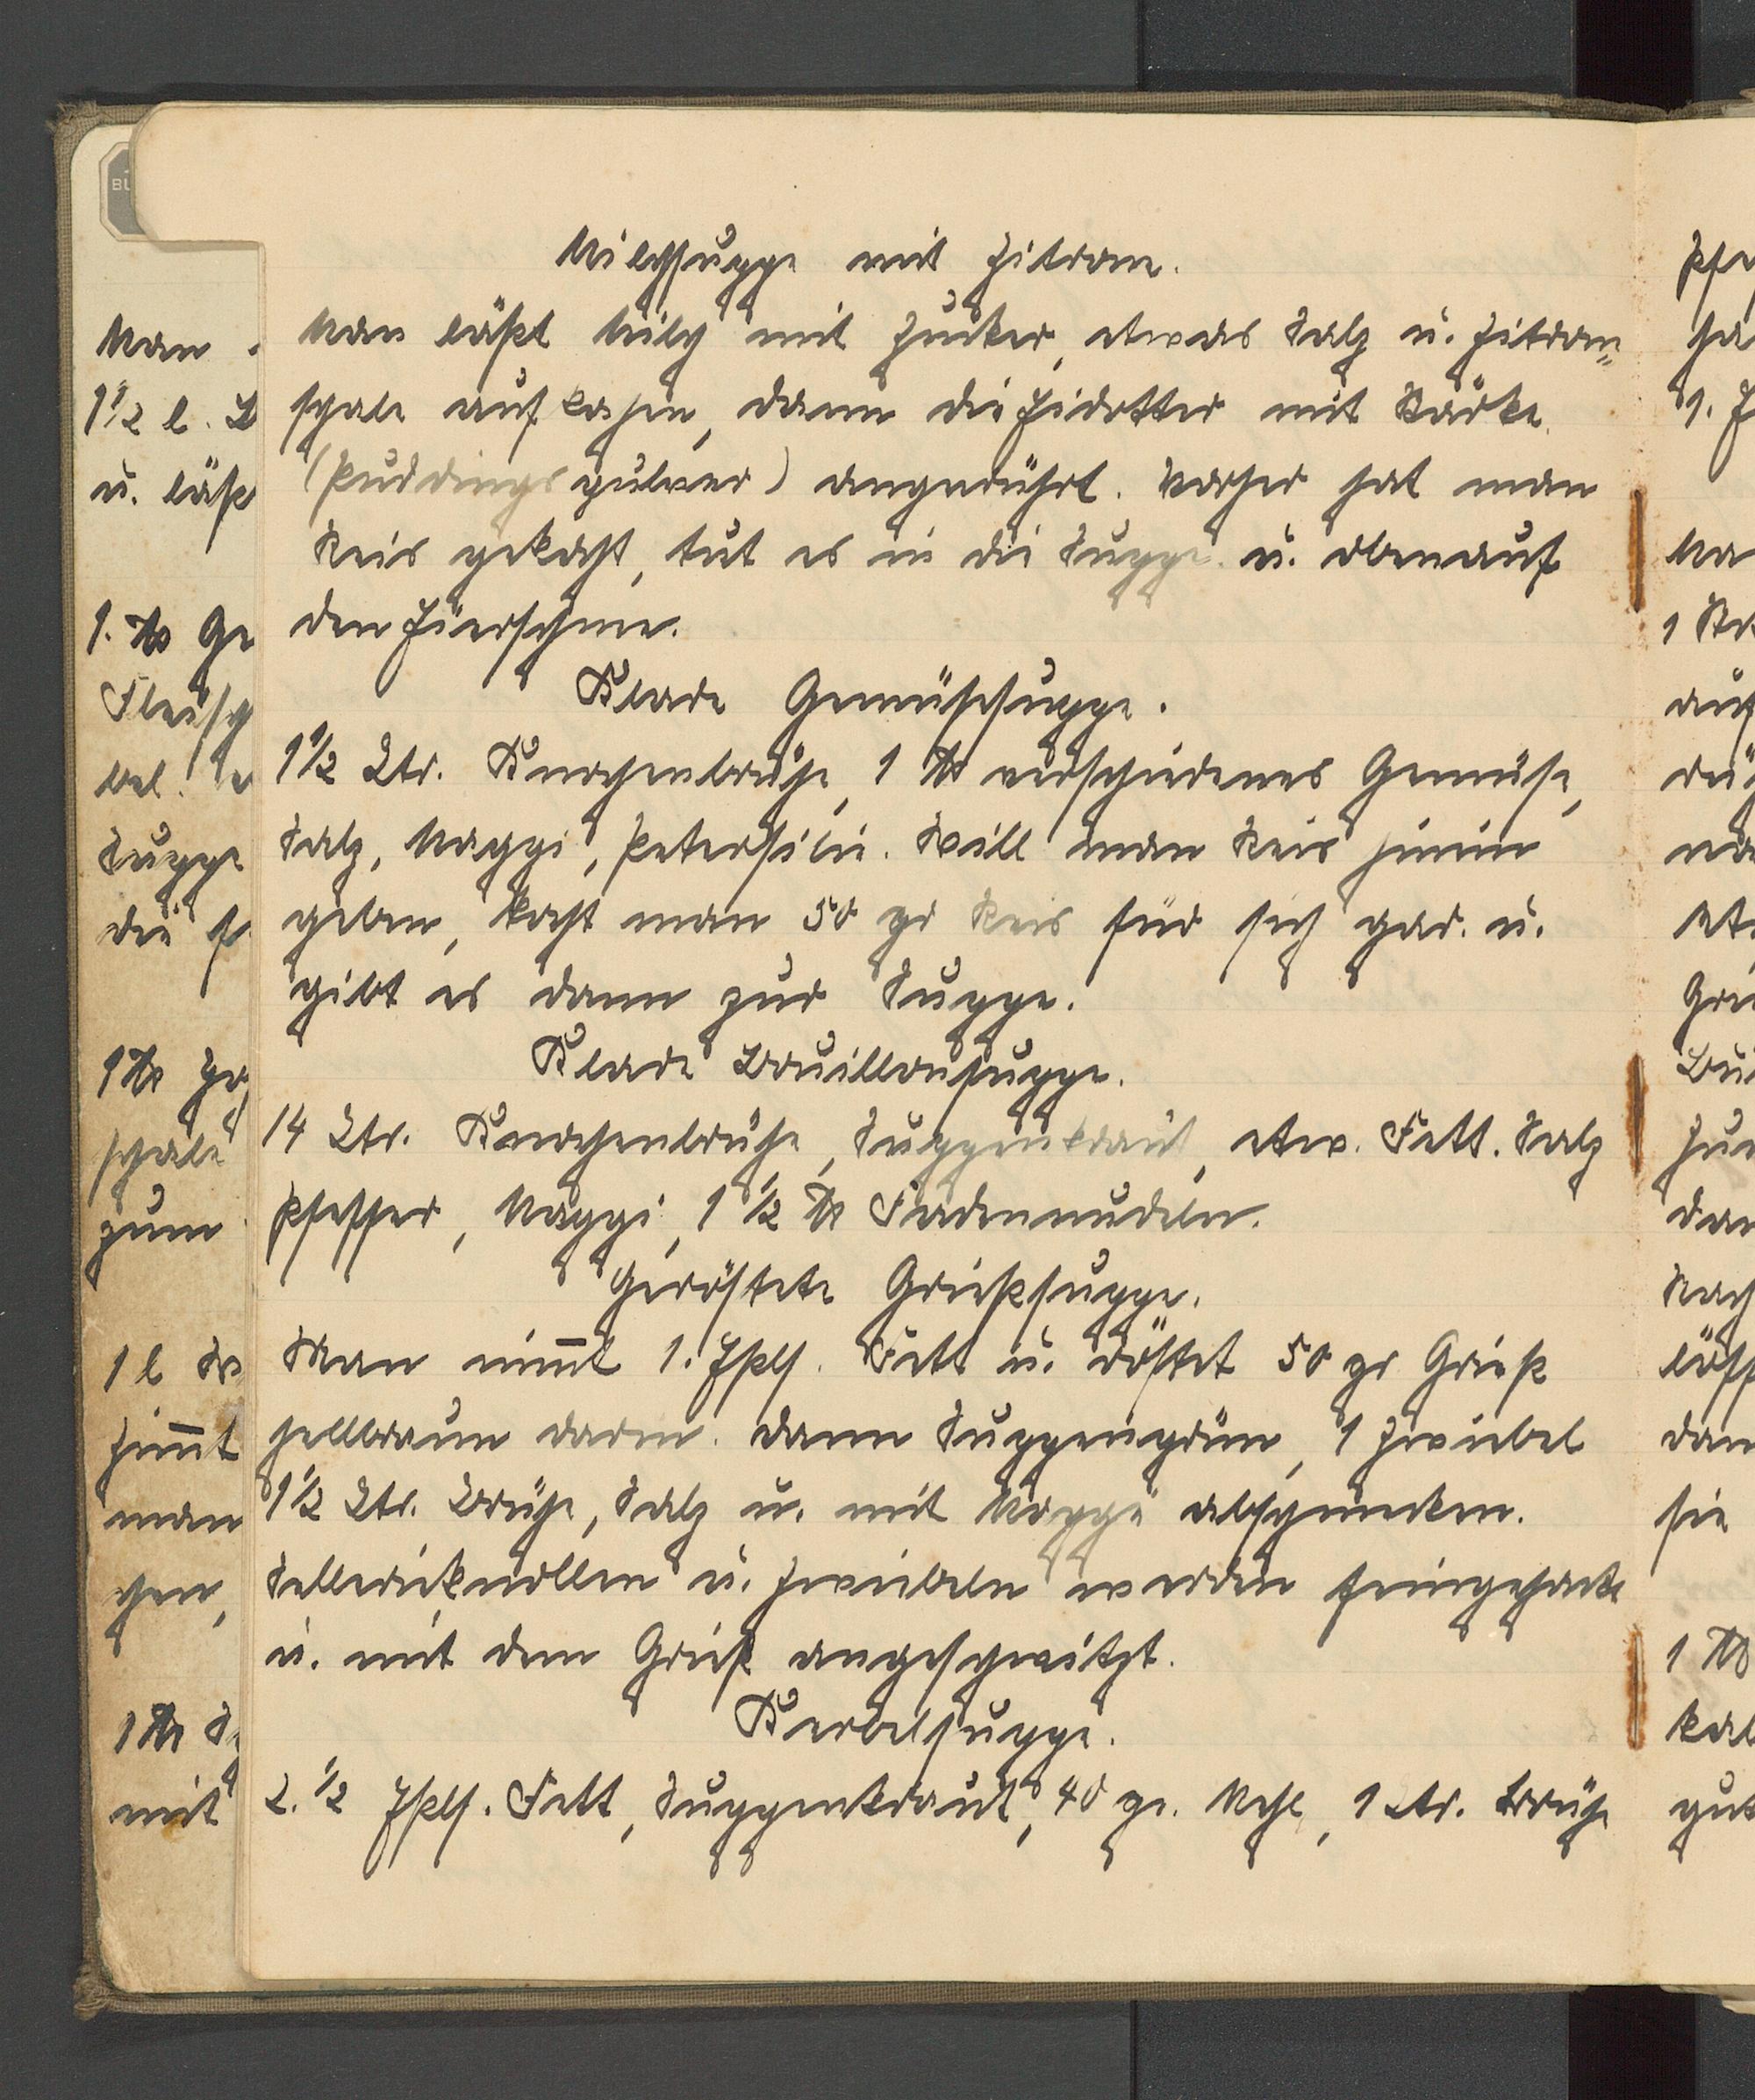 Milchsuppe mit Zitrone.
Man läßt Milch mit Zucker, etwas Salz u. Zitron=
schale aufkochen, dann die Eidotter mit Stärke
(Puddingspulver) angerührt. Vorher hat man
Reis gekocht, tut es in die Suppe u. obenauf
den Eierschnee.
Klare Gemüsesuppe.
1 1/2 Ltr. Knochenbrühe, 1 ℔ verschiedenes Gemüse,
Salz, Maggi, Petersilie. Will man Reis hinein
geben, kocht man 50 gr Reis für sich gar. u.
gibt es dann zur Suppe.
Klare Bouillonsuppe.
14 Ltr. Knochenbrühe, Suppenkraut, etw. Fett. Salz
Pfeffer, Maggi, 1 1/2 ℔ Fadennudeln.
Geröstete Grießsuppe.
Man nim̅t 1. Eßlf. Fett u. röstet 50 gr Grieß
hellbraun darin. Dann Suppengrün, 1 Zwiebel
1 1/2 Ltr. Brühe, Salz u. mit Maggi abschmecken.
Sellerieknollen u. Zwiebeln werden feingehackt
u. mit dem Grieß angeschwitzt.
Kerbelsuppe.
2. 1/2 Eßlf. Fett, Suppenkraut, 40 gr. Mehl, 1 Ltr. Brühe
Man
1 1/2 l. B
u. läß
1. ℔ Ge
Fleisch
bel.
Suppe
die
1 ℔
schale
zum
1 l
Zim̅t
man
gen,
1 ℔
mit
Pfe
1. E
Ma
auf
Grie
dan
Nach
löff
dan
sie
1 ℔
gut